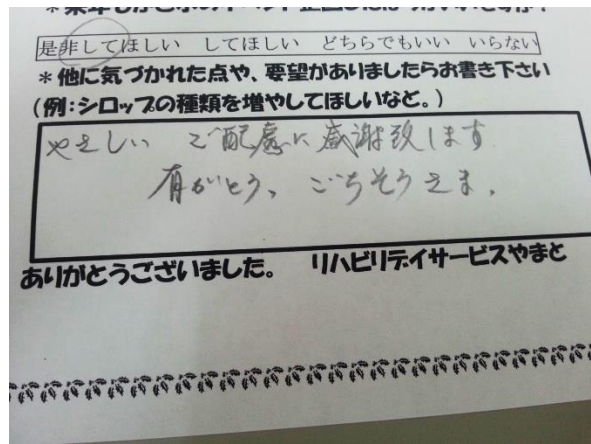 是非してほしい してほしい どちらでもいい いらない
*他に気づかれた点や、要望がありましたらお書き下さい
(例:シロップの種類を増やしてほしいなど。)
やさしい ご配慮に感謝致します
有がとう、ごちそうさま、
ありがとうございました。 リハビリデイサービスやまと